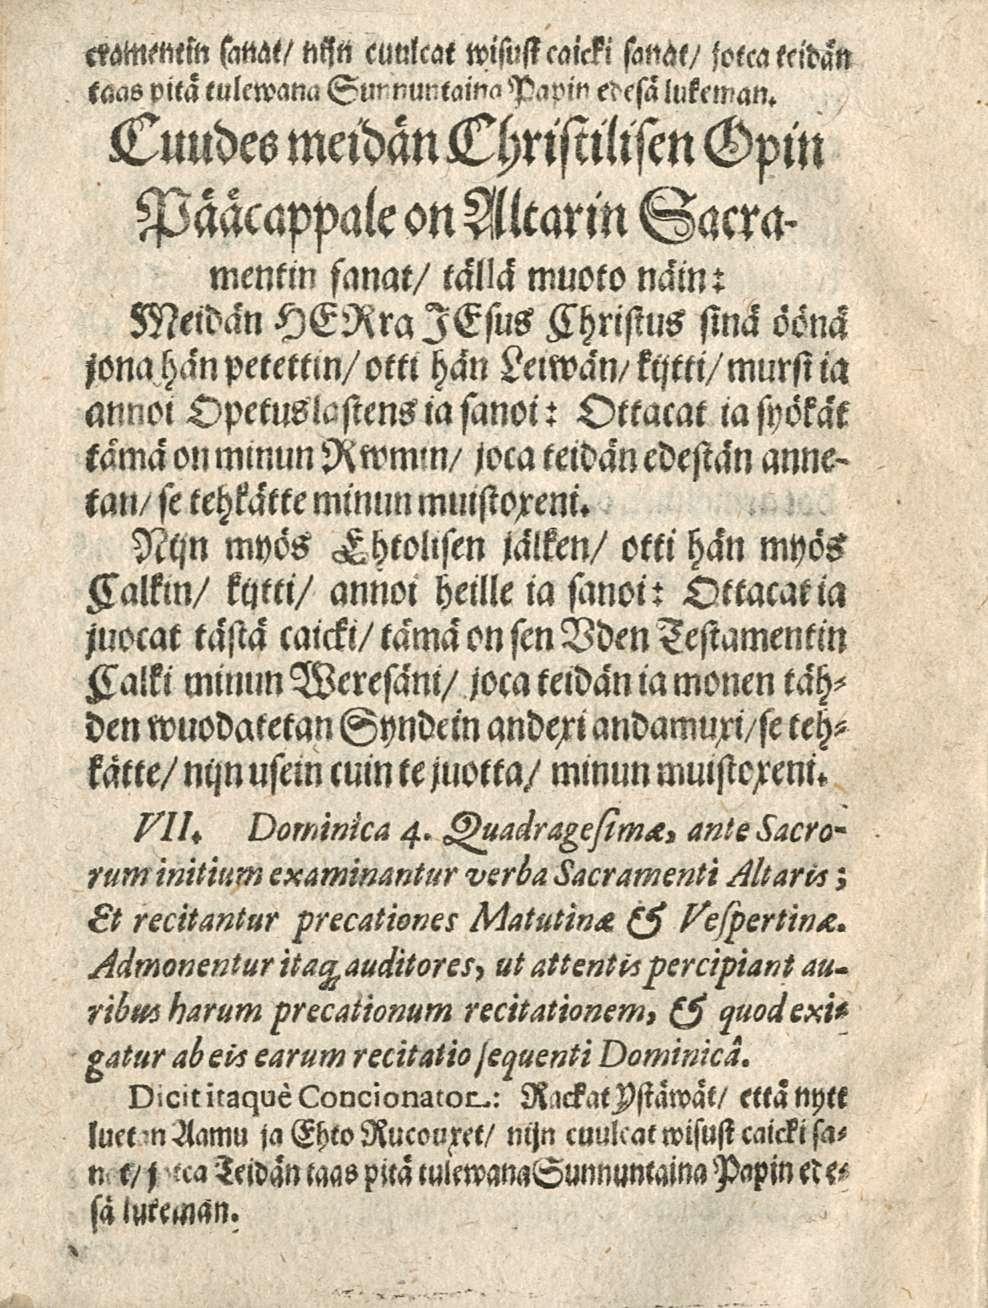 cramentin sanat/ nijn cuulcat wisust caicki sanat/ jotca teidän
taas pitä tulewana Sunnuntaina Papin edesä lukeman.
Cuudes meidän Christilisen Opin
Pääcappale on Altarin Sacra-
mentin sanat/ tällä muoto näin:
Meidän HERra JEsus Christus sinä öönä
jona hän petettin/ otti hän Leiwän/ kijtti/ mursi ia
annoi Opetuslastens ia sanoi: Ottacat ia syökät
tämä on minun Rwmin/ joca teidän edestän anne-
tan/ se tehkätte minun muistoxeni.
Nijn myös Ehtolisen jälken/ otti hän myös
Calkin/ kijtti/ annoi heille ia sanoi: Ottacat ia
juocat tästä caicki/ tämä on sen Vden Testamentin
Calki minun Weresäni/ joca teidän ia monen täh-
den wuodatetan Syndein andexi andamuxi/ se teh-
kätte/ nijn usein cuin te juotta/ minun muistoxeni.
VII. Dominica 4. Quadragesimæ, ante Sacro-
rum initium examinantur verba Sacramenti Altaris;
Et recitantur precationes Matutinæ & Vespertinæ.
Admonentur itaq; auditores, ut attentis percipiant au-
ribus harum precationum recitationem, & quod exi-
gatur ab eis earum recitatio sequenti Dominicâ.
Dicit itaquè Concionator: Rackat Ystäwät/ että nytt
luetan Aamu ja Ehto Rucouxet/ nijn cuulcat wisust caicki sa-
nat/ jotca Teidän taas pitä tulewana Sunnuntaina Papin ede-
sä lukeman.